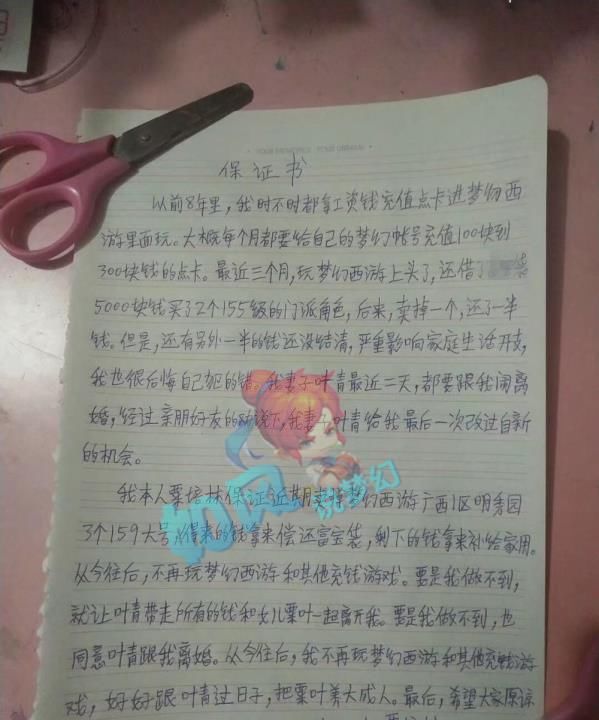 保证书
以前8年里，我时不时都拿工资钱充值点卡进梦幻西
游里面玩。大概每个月都要给自己的梦幻帐号充值100块到
300块钱的点卡。最近三个月，玩梦幻西游上头了，还借了
5000块钱买了2个155级的门派角色，后来，卖掉一个，还了一半
钱。但是，还有另外一半的钱还没结清，严重影响家庭生活开支，
我也很后悔自己犯的错。我妻子叶青最近二天，都要跟我闹离
婚，经过亲朋好友的劝说下，我妻子叶青给我最后一次改过自新
的机会。
我本人覃培林保证近期卖掉梦幻西游广西1区明秀园
3个159大号，得来的钱拿来偿还富宝袋，剩下的钱拿来补给家用。
从今往后，不再玩梦幻西游和其他充钱游戏。要是我做不到，
就让叶青带走所有的钱和女儿覃叶一起离开我。要是我做不到，也
同意叶青跟我离婚。从今往后，我不再玩梦幻西游和其他充钱游
戏，好好跟叶青过日子，把覃叶养大成人。最后，希望大家原谅
如风
说梦幻